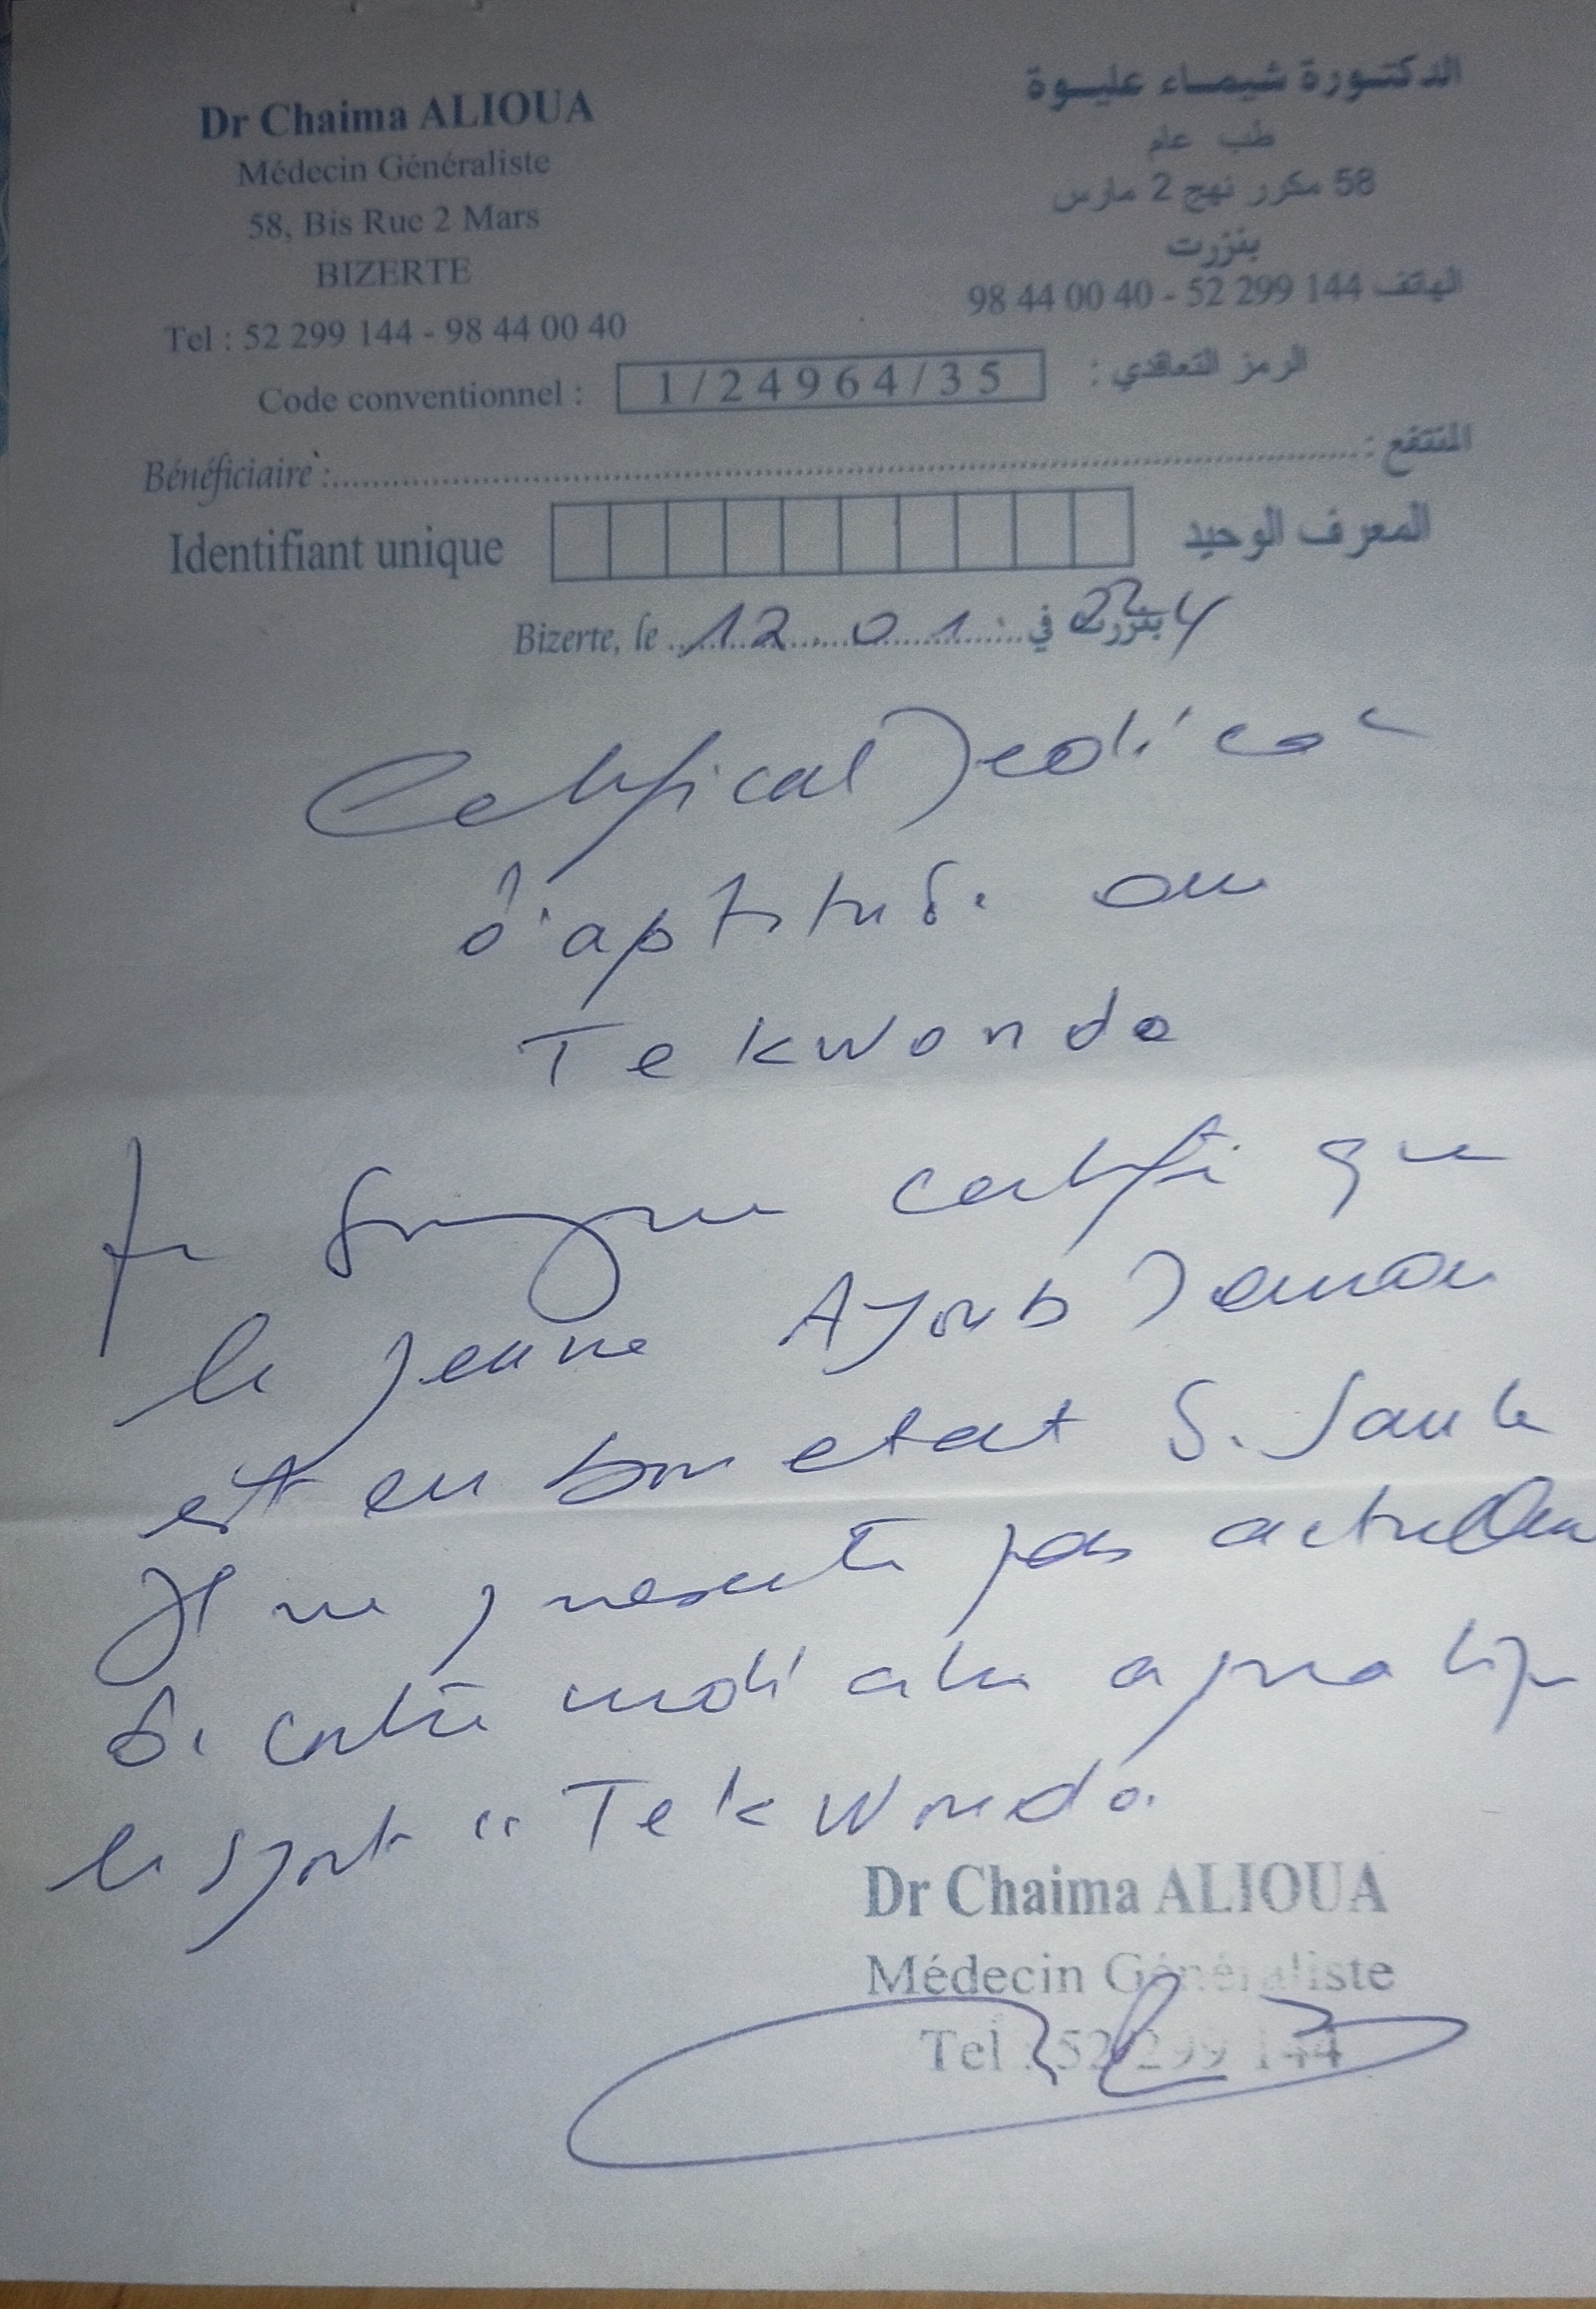 Dr Chaima ALIOUA
Médecin Généraliste
58, Bis Rue 2 Mars
BIZERTE
Tel : 52 299 144 - 98 44 00 40
الدكتورة شيماء عليوة
طب عام
58 مكرر نهج 2 مارس
بنزرت
الهاتف 144 299 52 - 40 00 44 98
Code conventionnel : 1/24964/35 الرمز التعاقدي :
Bénéficiaire : المنتفع :
Identifiant unique المعرف الوحيد
Bizerte, le 12 01 بنزرت في
Certificat Medical
d'aptitude au
Tekwondo
Je soussigné certifie que
le jeune Ayoub
est en bon etat de sante
Il ne presente pas
de contre indication a pratiquer
le sport " Tekwondo.
Dr Chaima ALIOUA
Médecin Généraliste
Tel : 52 299 144